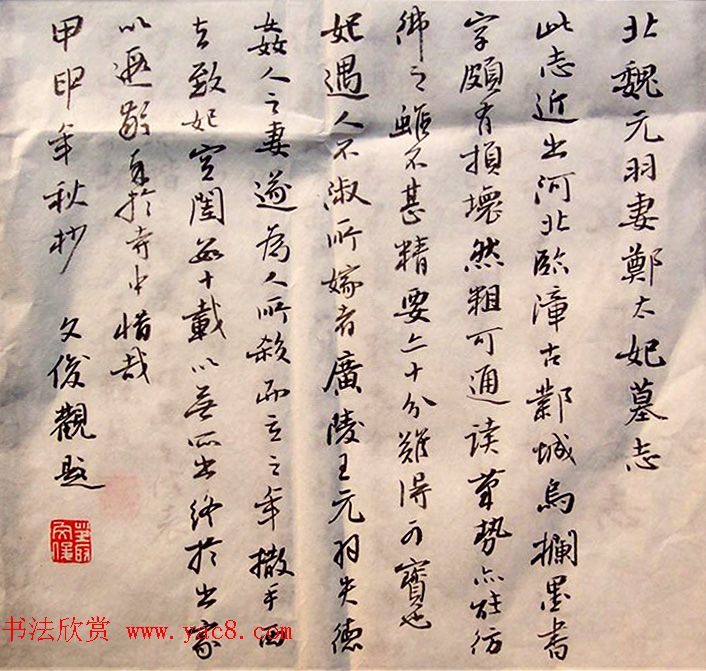 北魏元羽妻鄭太妃墓志
此志近出河北臨漳古鄴城烏攔墨書
字頗有損壞然粗可通读筆勢亦能彷
彿之雖不甚精要亦十分難得可寶也
妃遇人不淑所嫁者廣陵王元羽失德
姦人之妻遂為人所殺而立之年撒手西
去致妃空閨數十載以無所出終於出家
以遯於寺中惜哉
甲申年秋杪 文俊觀題
书法欣赏 www.yac8.com